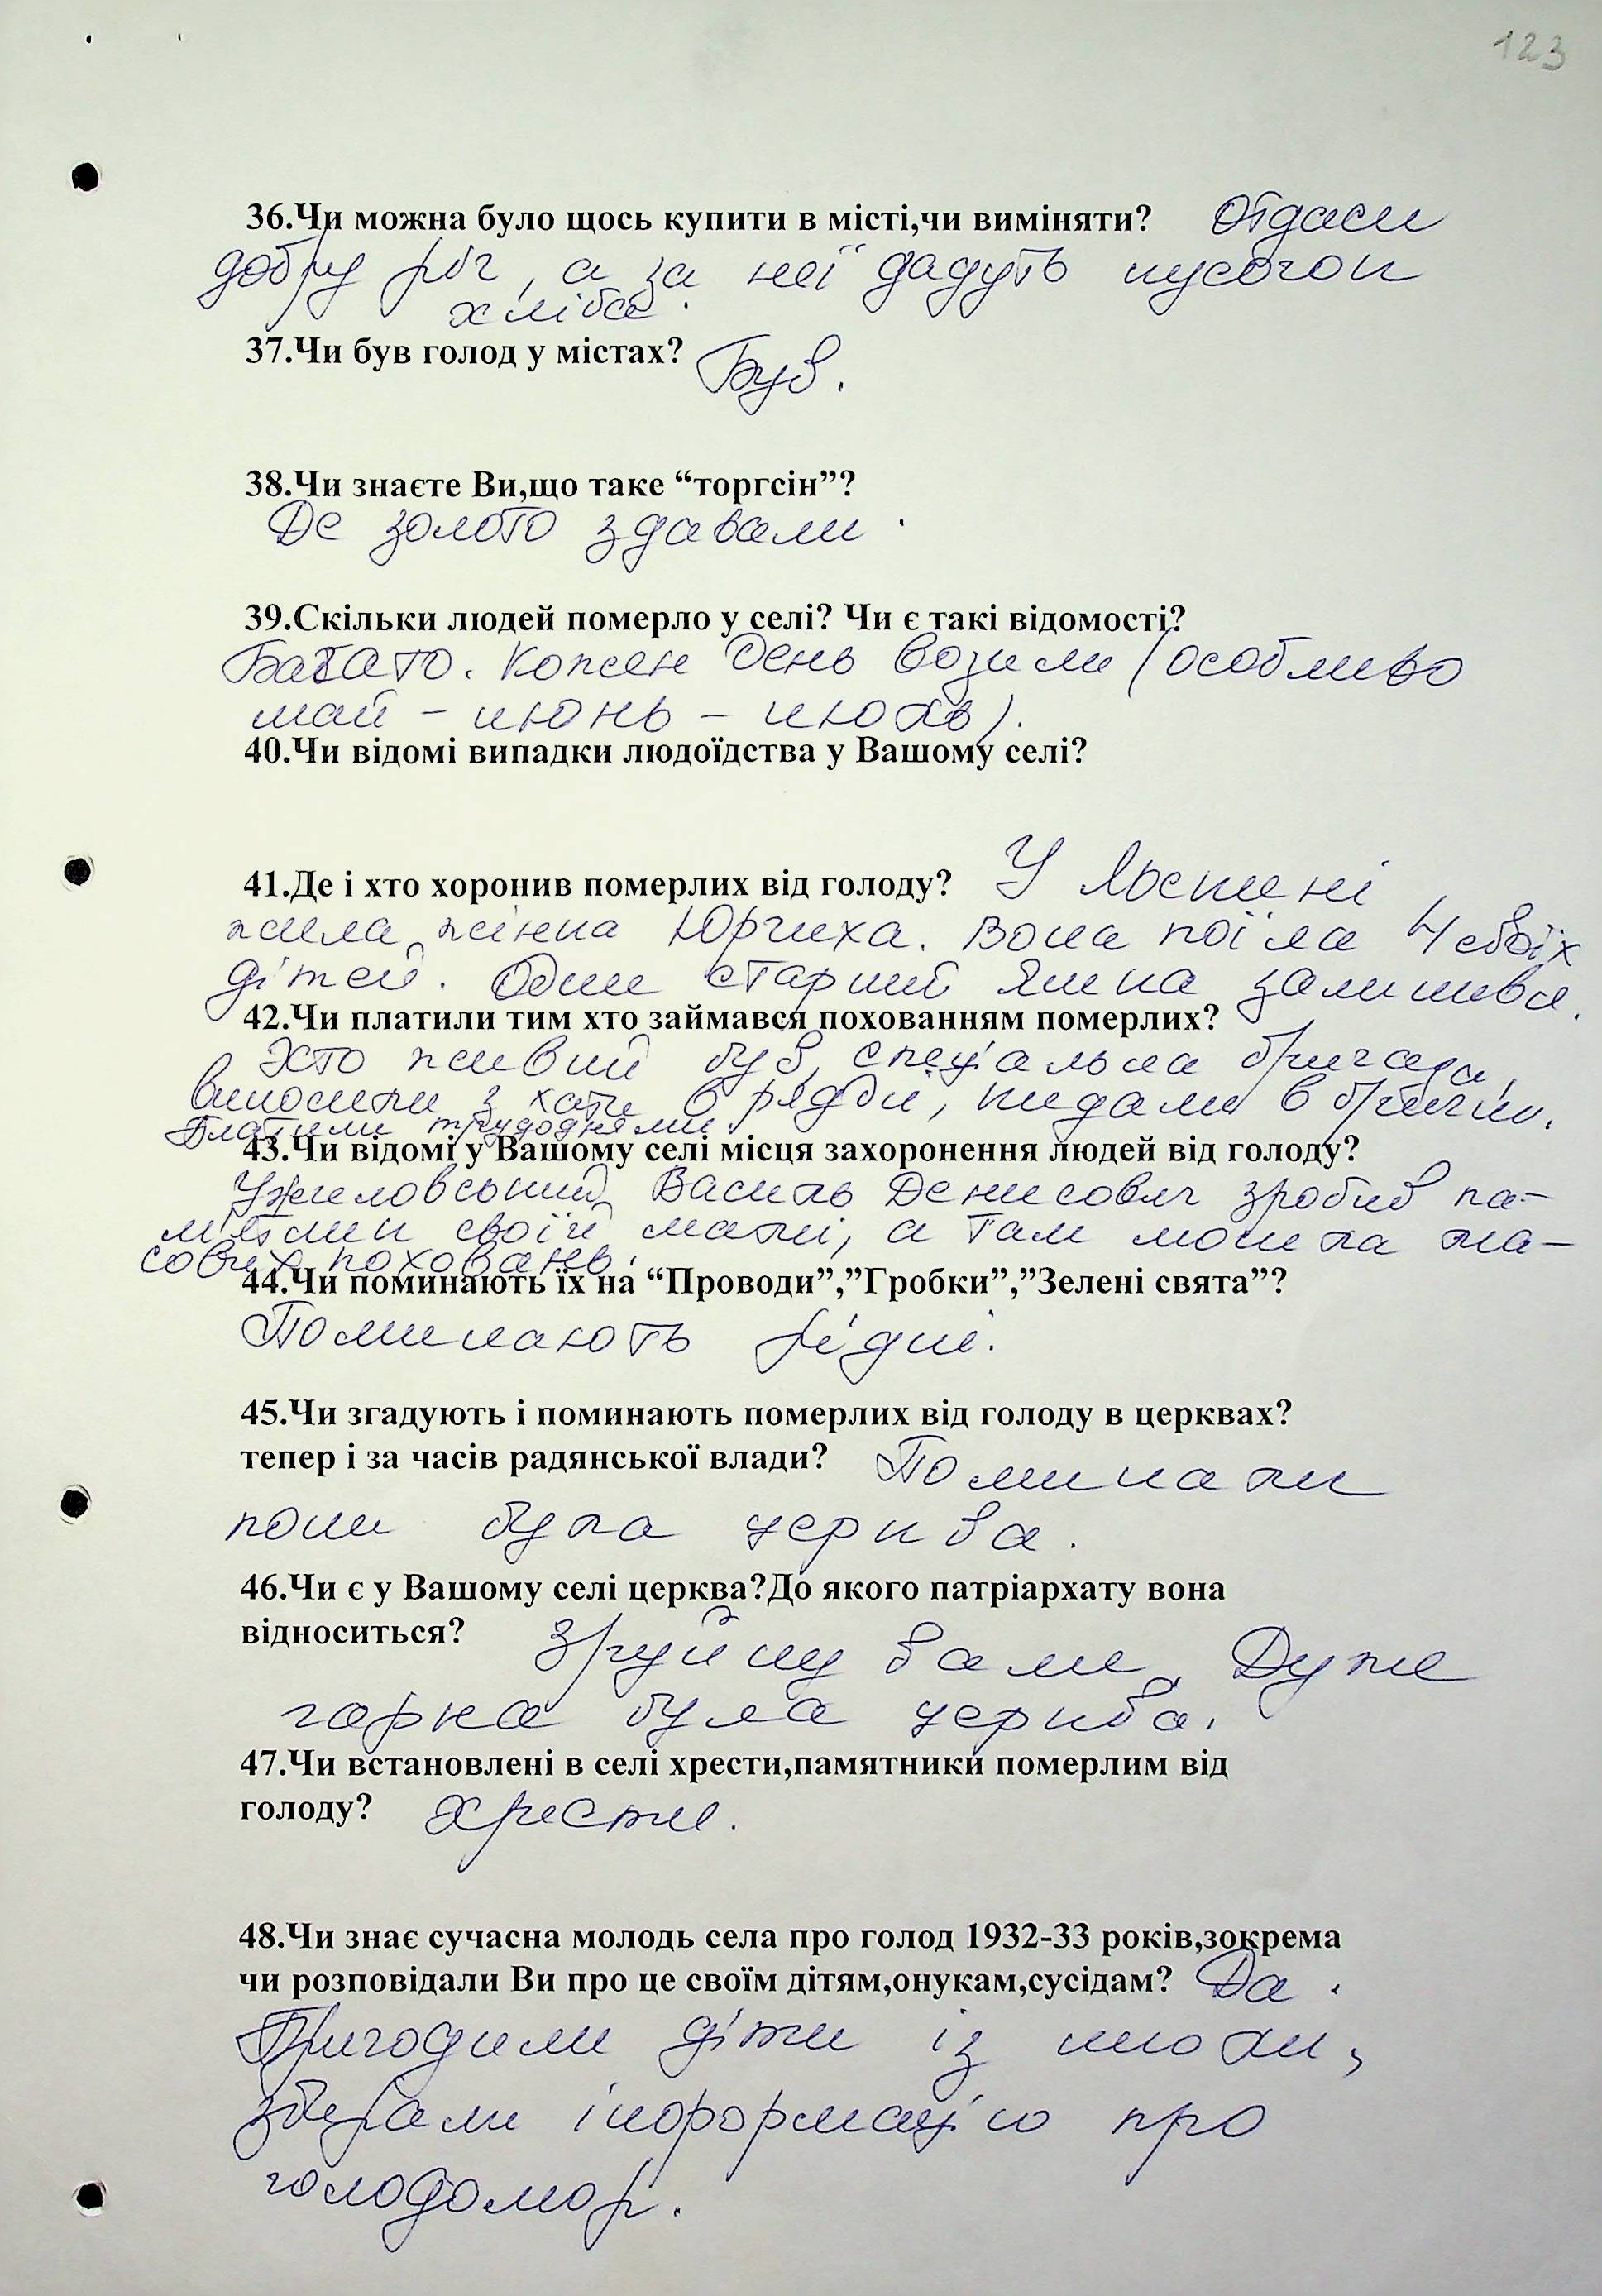 123
36.Чи можна було щось купити в місті,чи виміняти? Отдаси
добру річ, а за неї дадуть кусочок
хліба.
37.Чи був голод у містах? Був.
38.Чи знаєте Ви,що таке “торгсін”?
Де золото здавали.
39.Скільки людей померло у селі? Чи є такі відомості?
Багато. Кожен день возили (особливо
май - июнь - июль).
40.Чи відомі випадки людоїдства у Вашому селі?
41.Де і хто хоронив померлих від голоду? У
жила жінка Юрчиха. Вона поїла 4 своїх
дітей. Один старший залишився.
42.Чи платили тим хто займався похованням померлих?
Хто живий був, спеціальна бригада,
виносили з хати в рядні, кидали в бричку.
Платили трудоднями.
43.Чи відомі у Вашому селі місця захоронення людей від голоду?
Василь Денисович зробив па-
м'ятник своїй матері, а там могила ма-
сових поховань.
44.Чи поминають їх на “Проводи”,”Гробки”,”Зелені свята”?
Поминають рідні.
45.Чи згадують і поминають померлих від голоду в церквах?
тепер і за часів радянської влади? Поминали
коли була церква.
46.Чи є у Вашому селі церква?До якого патріархату вона
відноситься? Зруйнували. Дуже
гарна була церква.
47.Чи встановлені в селі хрести,памятники померлим від
голоду? Хрести.
48.Чи знає сучасна молодь села про голод 1932-33 років,зокрема
чи розповідали Ви про це своїм дітям,онукам,сусідам? Да.
Приходили діти із школи,
збирали інформацію про
голодомор.